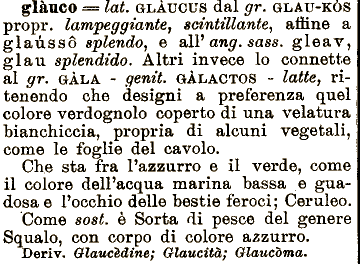 glàuco = lat. GLÀUCUS dal gr. GLAU-KÒS
propr. lampeggiante, scintillante, affine a
glaússô splendo, e all' ang. sass. gleav,
glau splendido. Altri invece lo connette
al gr. GÀLA - genit. GÀLACTOS - latte, ri-
tenendo che designi a preferenza quel
colore verdognolo coperto di una velatura
bianchiccia, propria di alcuni vegetali,
come le foglie del cavolo.
Che sta fra l'azzurro e il verde, come
il colore dell'acqua marina bassa e gua-
dosa e l'occhio delle bestie feroci; Ceruleo.
Come sost. è Sorta di pesce del genere
Squalo, con corpo di colore azzurro.
Deriv. Glaucèdine; Glaucità; Glaucòma.